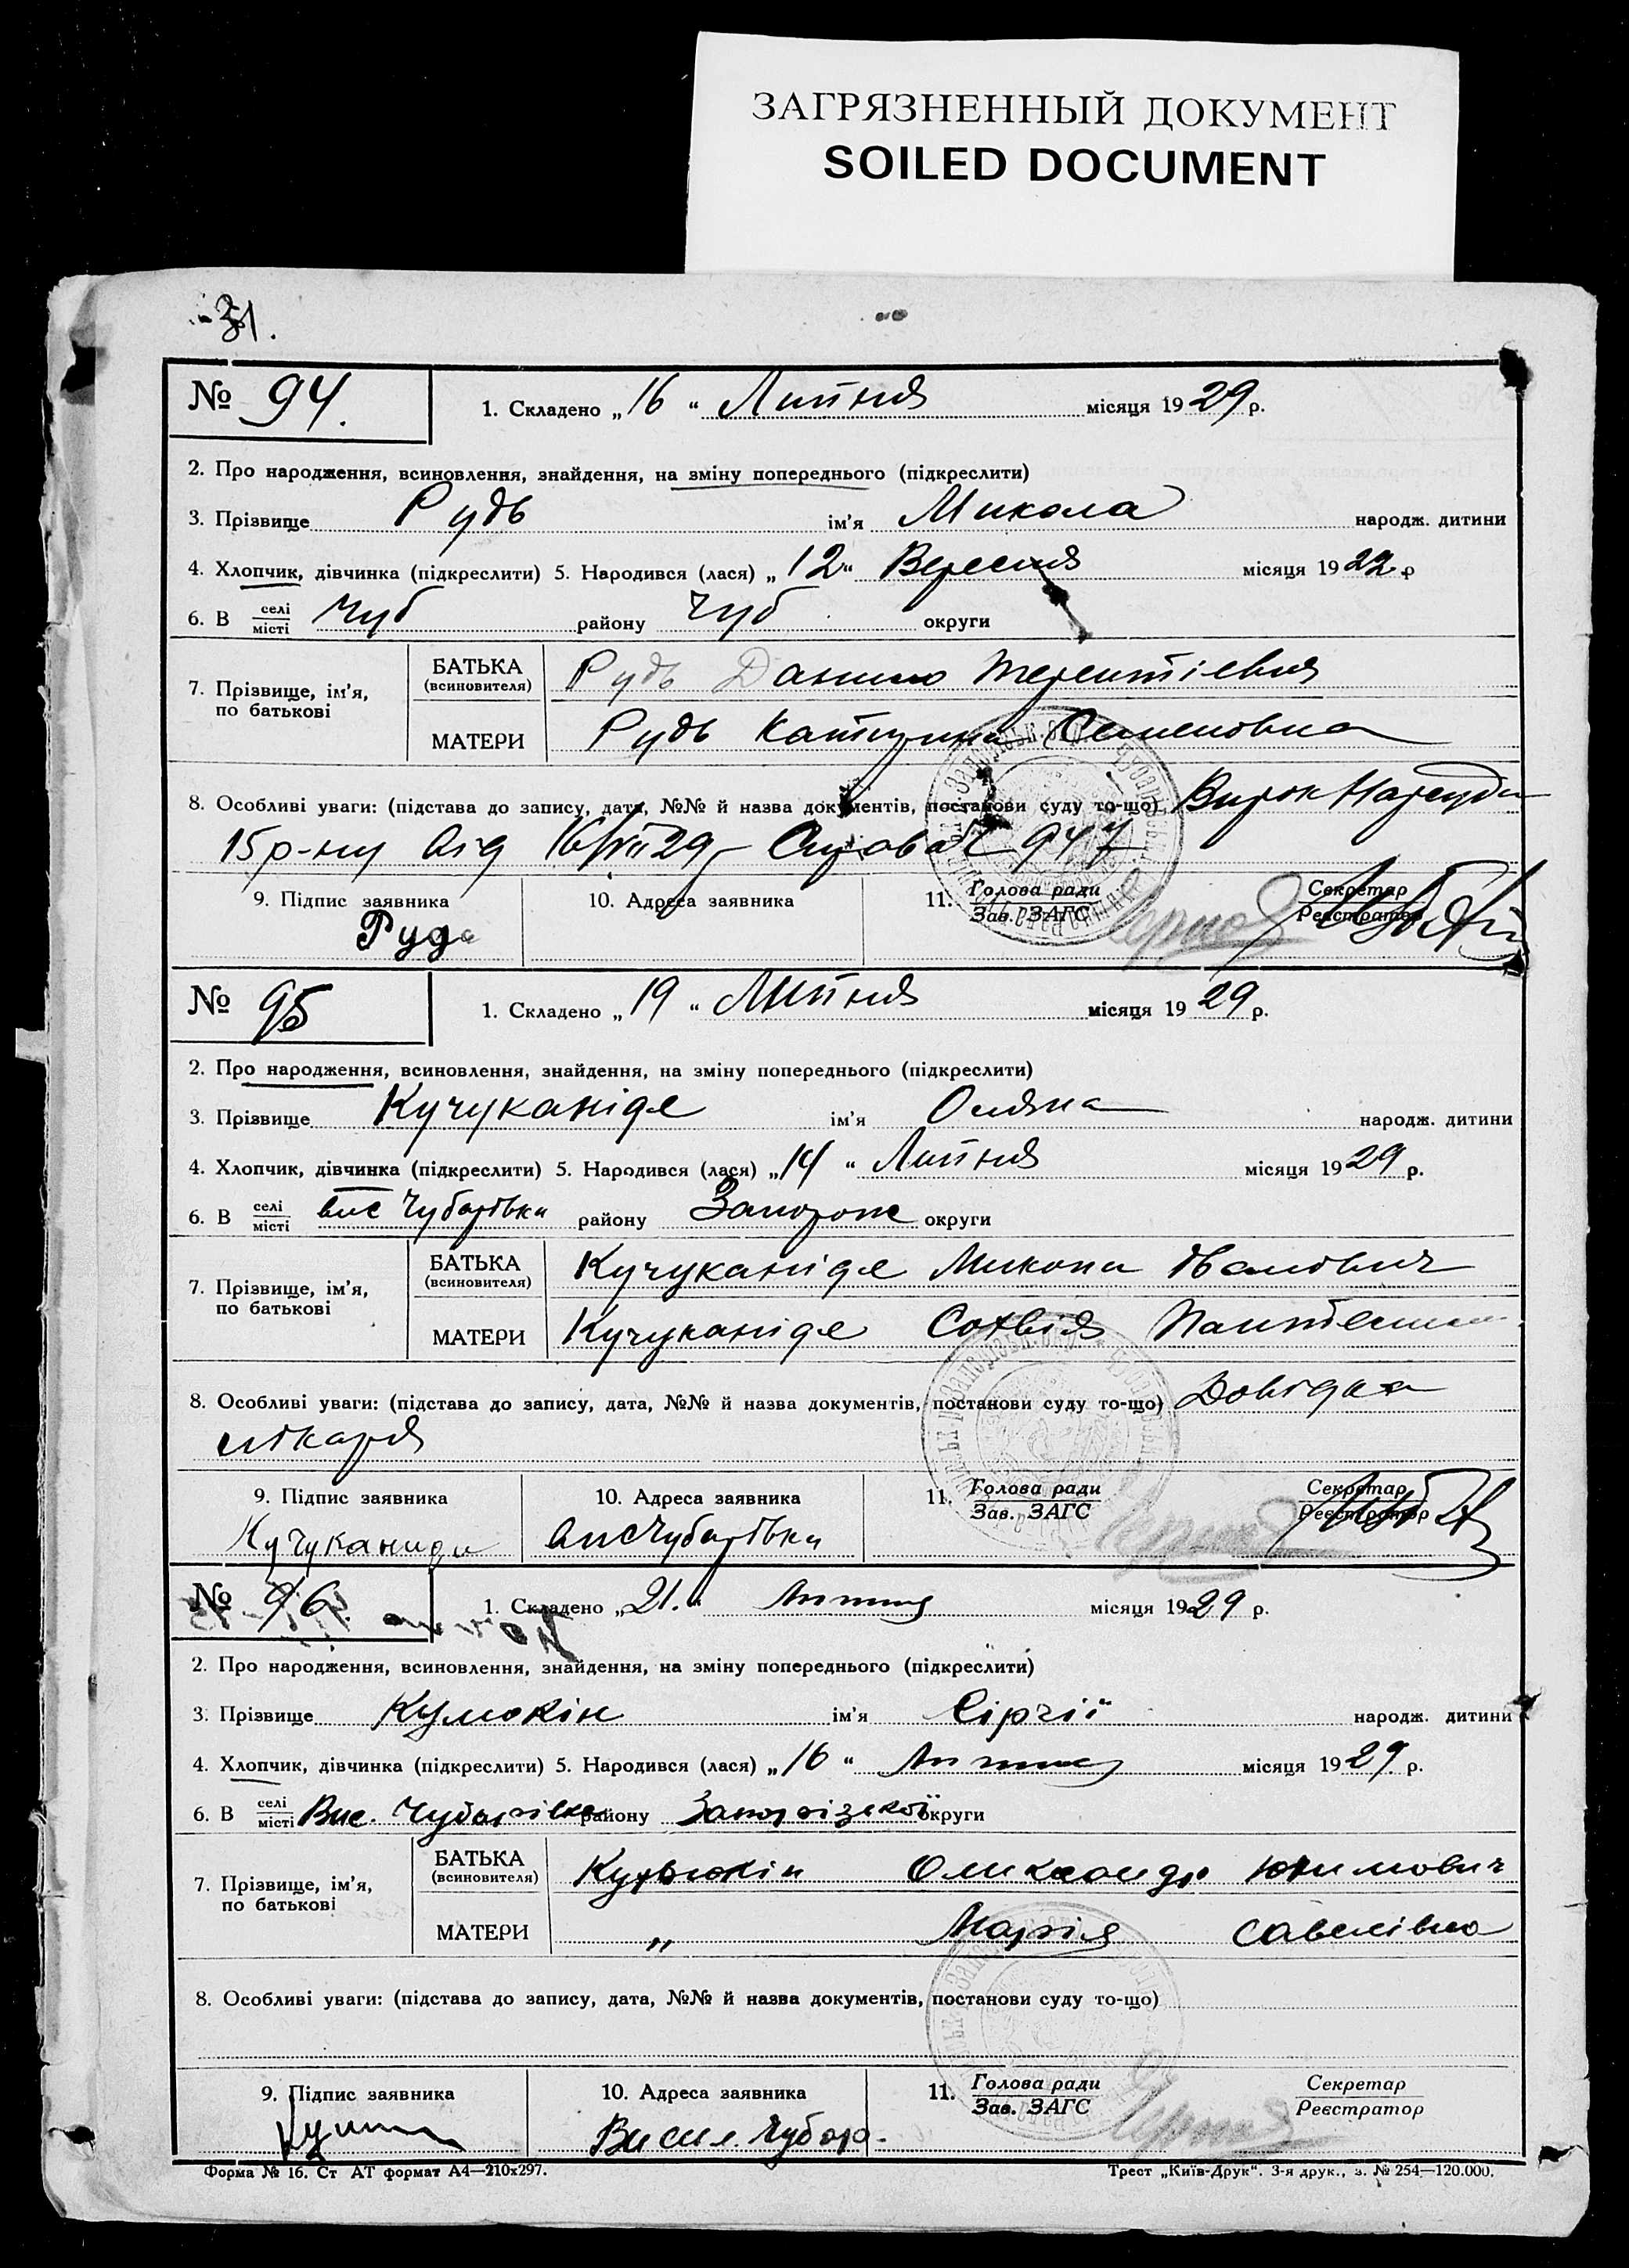 ЗАГРЯЗНЕННЫЙ ДОКУМЕНТ
SOILED DOCUMENT
31.
№ 94. 1. Складено „16“ Липня місяця 1929 р.
2. Про народження, всиновлення, знайдення, на зміну попереднього (підкреслити)
3. Прізвище Рудь ім'я Микола народж. дитини
4. Хлопчик, дівчинка (підкреслити) 5. Народився (лася) „12“ Вересня місяця 1922 р
6. В селі/місті Чуб району Чуб округи
7. Прізвище, ім'я, по батькові
БАТЬКА (всиновителя) Рудь Данило Терентієвич
МАТЕРИ Рудь Катерина Семеновна
8. Особливі уваги: (підстава до запису, дата, №№ й назва документів, постанови суду то-що) Вирок Нарсуда
15 р-ну від 16/VII 29 Справа № 947
9. Підпис заявника 10. Адреса заявника 11. Голова ради/Зав. ЗАГС Секретар/Реєстратор
Рудь
№ 95 1. Складено „19“ Липня місяця 1929 р.
2. Про народження, всиновлення, знайдення, на зміну попереднього (підкреслити)
3. Прізвище Кучуканіде ім'я Оляна народж. дитини
4. Хлопчик, дівчинка (підкреслити) 5. Народився (лася) „14“ Липня місяця 1929 р.
6. В селі/місті вис Чубарівка району Запорож округи
7. Прізвище, ім'я, по батькові
БАТЬКА (всиновителя) Кучуканіде Микола Іванович
МАТЕРИ Кучуканіде Софвія
8. Особливі уваги: (підстава до запису, дата, №№ й назва документів, постанови суду то-що) Довідка
лікаря
9. Підпис заявника 10. Адреса заявника 11. Голова ради/Зав. ЗАГС Секретар/Реєстратор
Кучуканиди вис Чубарівка
№ 96. 1. Складено „21.“ Липня місяця 1929 р.
2. Про народження, всиновлення, знайдення, на зміну попереднього (підкреслити)
3. Прізвище ім'я Сіргій народж. дитини
4. Хлопчик, дівчинка (підкреслити) 5. Народився (лася) „16“ Липня місяця 1929 р.
6. В селі/місті Вис. Чубарівка району Запорізької округи
7. Прізвище, ім'я, по батькові
БАТЬКА (всиновителя) Олександр Юхимович
МАТЕРИ „ Марія Савелівна
8. Особливі уваги: (підстава до запису, дата, №№ й назва документів, постанови суду то-що)
9. Підпис заявника 10. Адреса заявника 11. Голова ради/Зав. ЗАГС Секретар/Реєстратор
Висил. Чубар.
Форма № 16. Ст АТ формат А4—210х297. Трест „Київ-Друк“. 3-я друк., з. № 254—120.000.